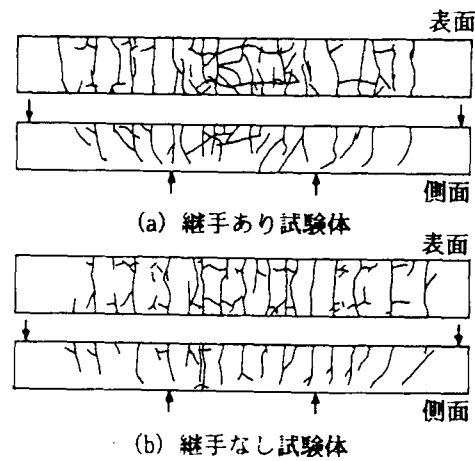 表面
側面
(a) 継手あり試験体
表面
側面
(b) 継手なし試験体